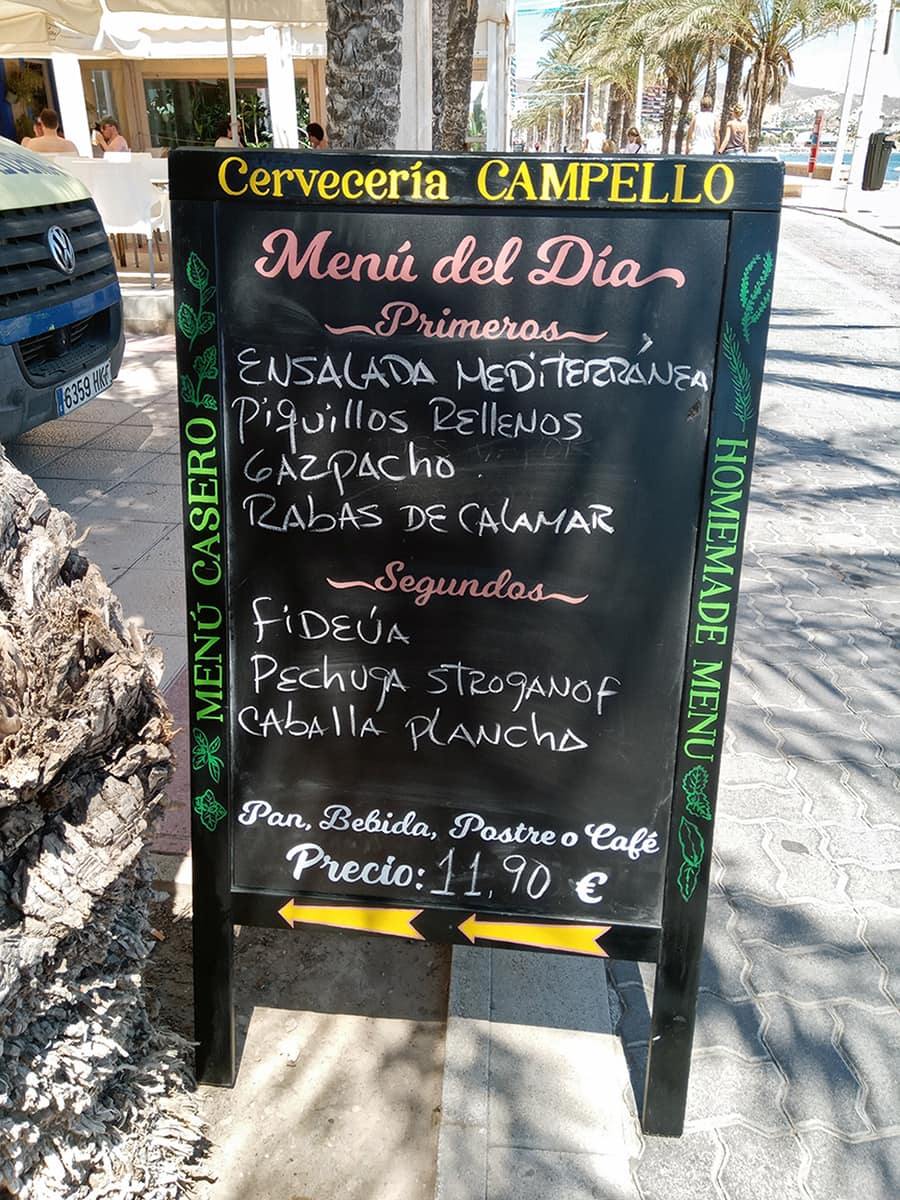 Cervecería CAMPELLO
Menú del Día
Primeros
ENSALADA MEDITERRÁNEA
Piquillos Rellenos
GAZPACHO
RABAS DE CALAMAR
Segundos
FIDEÚA
PECHUGA STROGANOF
CABALLA PLANCHA
Pan, Bebida, Postre o Café
Precio: 11,90 €
MENÚ CASERO
HOMEMADE MENU
6359 HKF